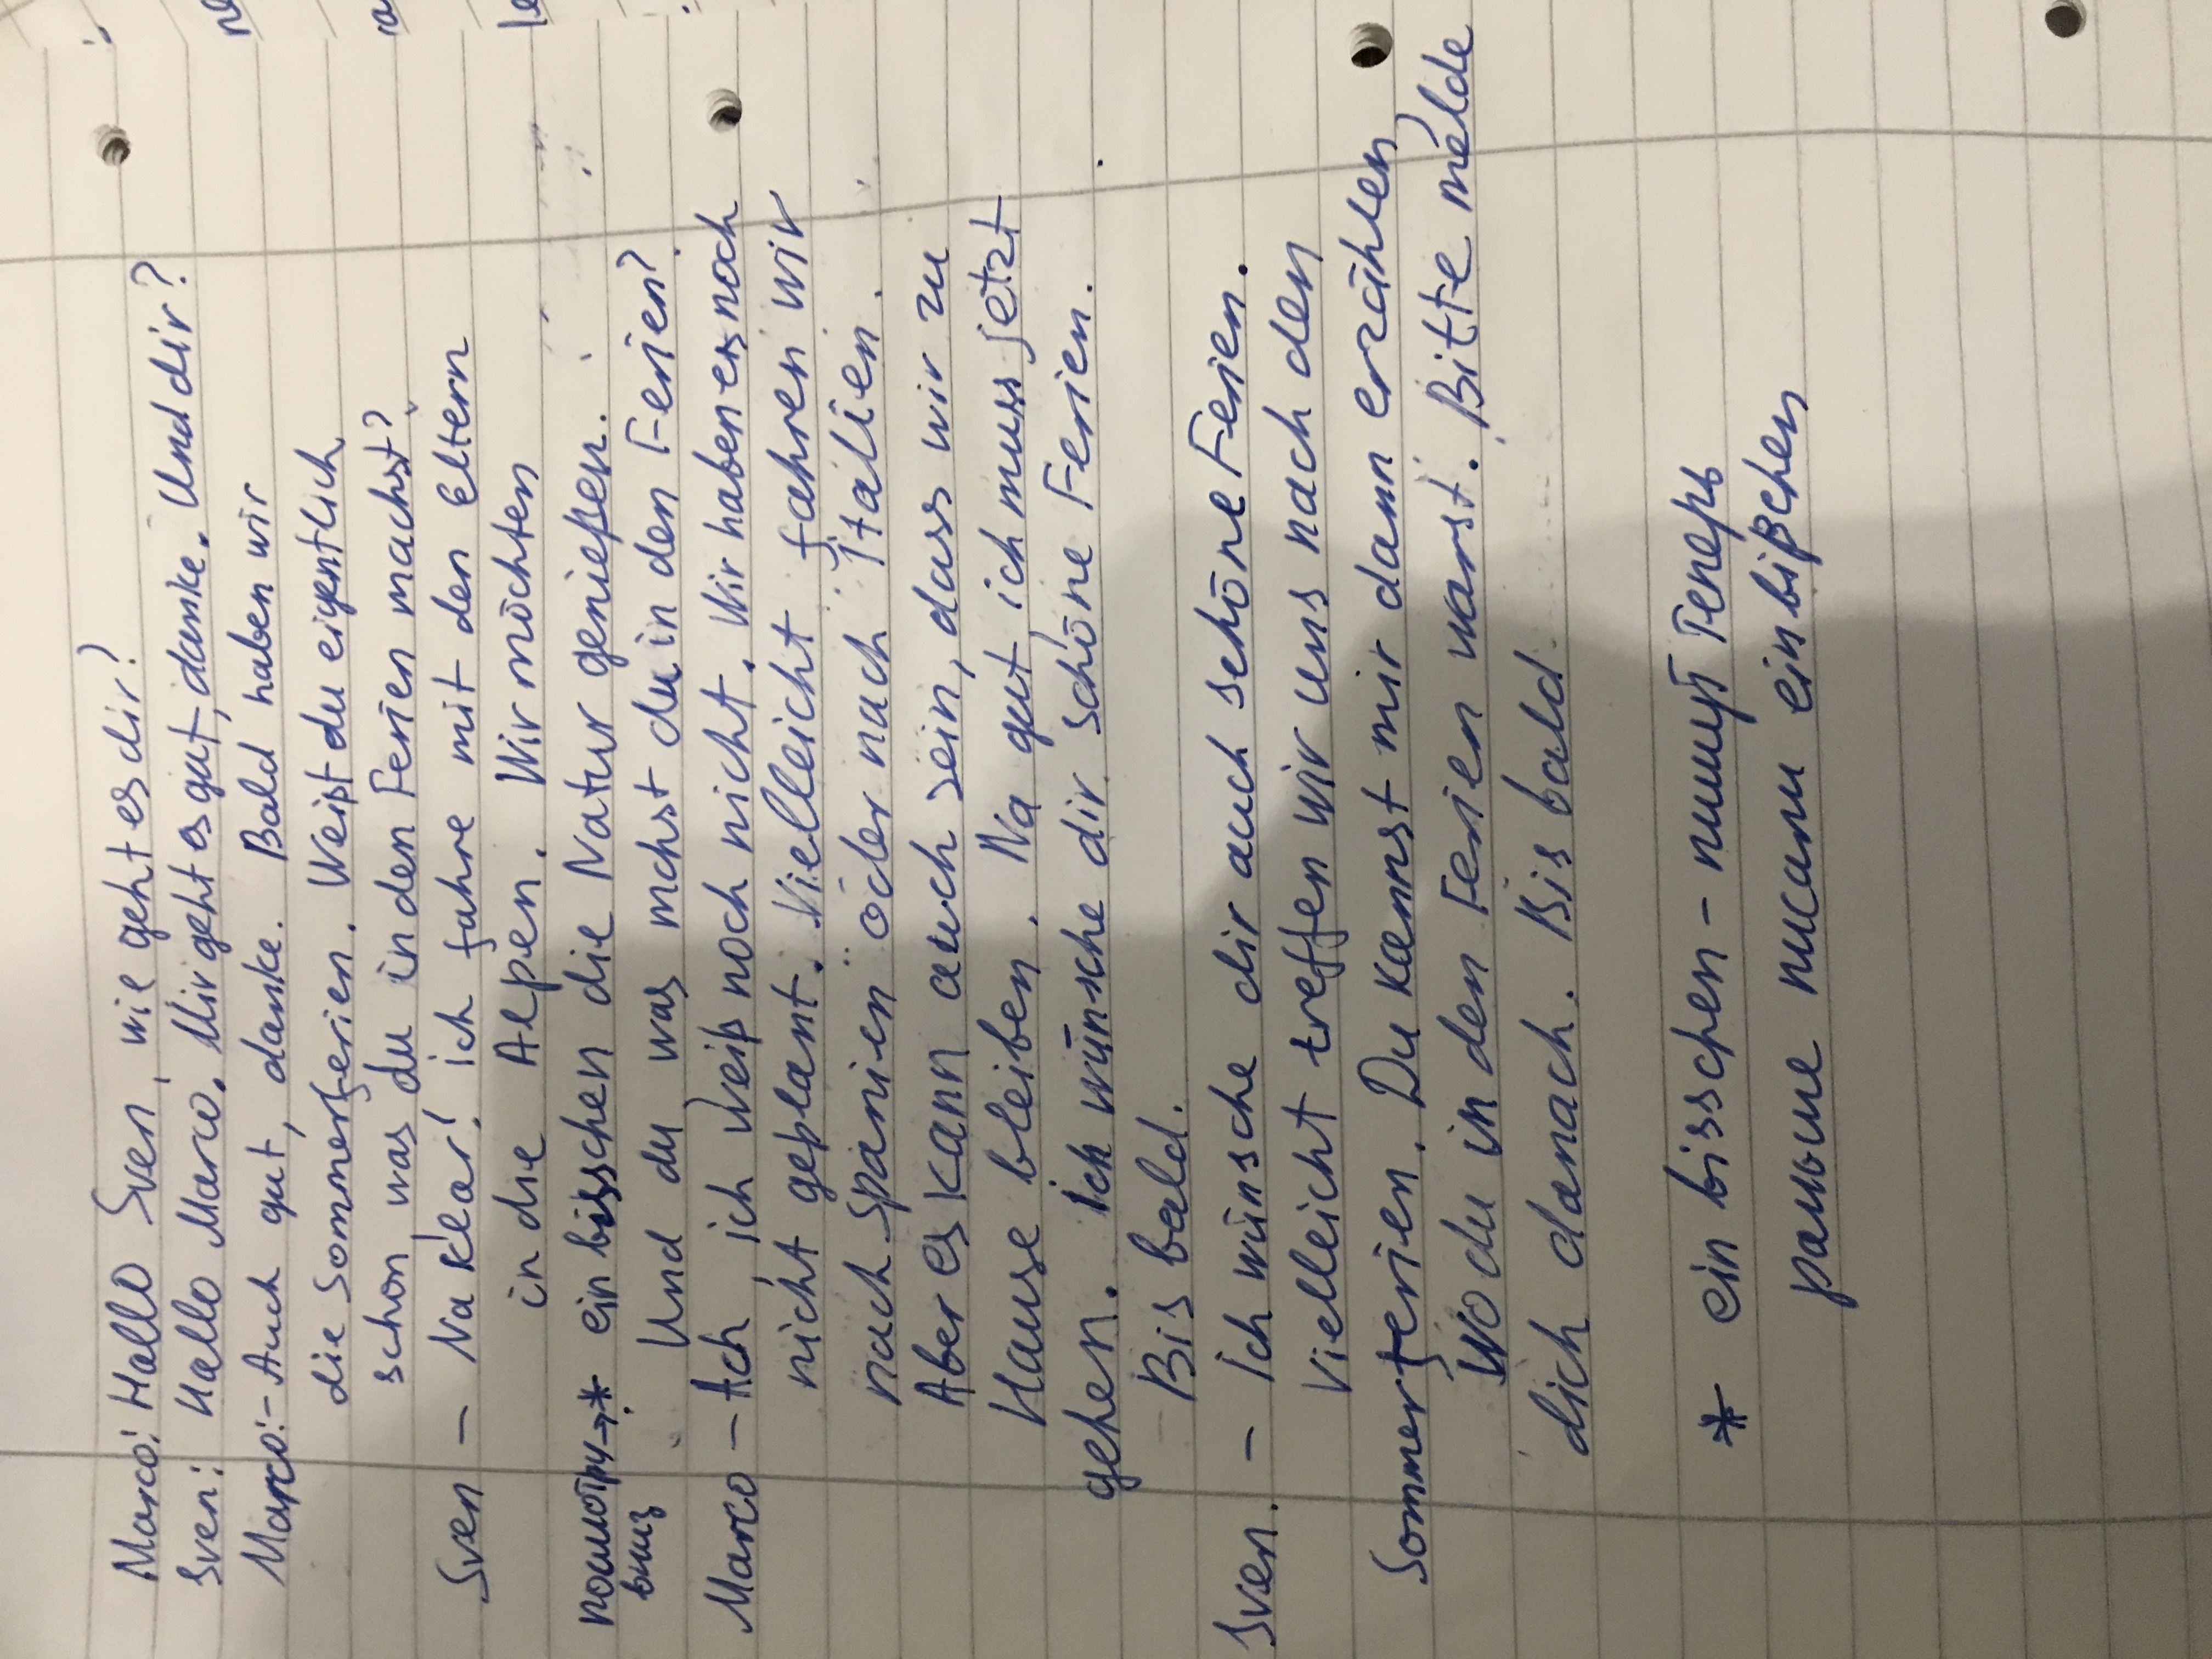 Marco: Hallo Sven, wie geht es dir?
Sven: Hallo Marco. Mir geht es gut, danke. Und dir?
Marco: - Auch gut, danke. Bald haben wir
die Sommerferien. Weißt du eigentlich
schon was du in den Ferien machst?
Sven - Na klar! ich fahre mit den Eltern
in die Alpen. Wir möchten
посмотру → * ein bisschen die Natur genießen.
вниз
Und du was machst du in den Ferien?
Marco - Ach ich weiß noch nicht. Wir haben es noch
nicht geplant. Vielleicht fahren wir
nach Spanien oder nach Italien.
Aber es kann auch sein, dass wir zu
Hause bleiben. Na gut ich muss jetzt
gehen. Ich wünsche dir schöne Ferien.
Bis bald.
Sven. - Ich wünsche dir auch schöne Ferien.
Vielleicht treffen wir uns nach den
Sommerferien. Du kannst mir dann erzählen
wo du in den Ferien warst. Bitte melde
dich danach. Bis bald.
* ein bisschen - пишут теперь
раньше писали ein bißchen